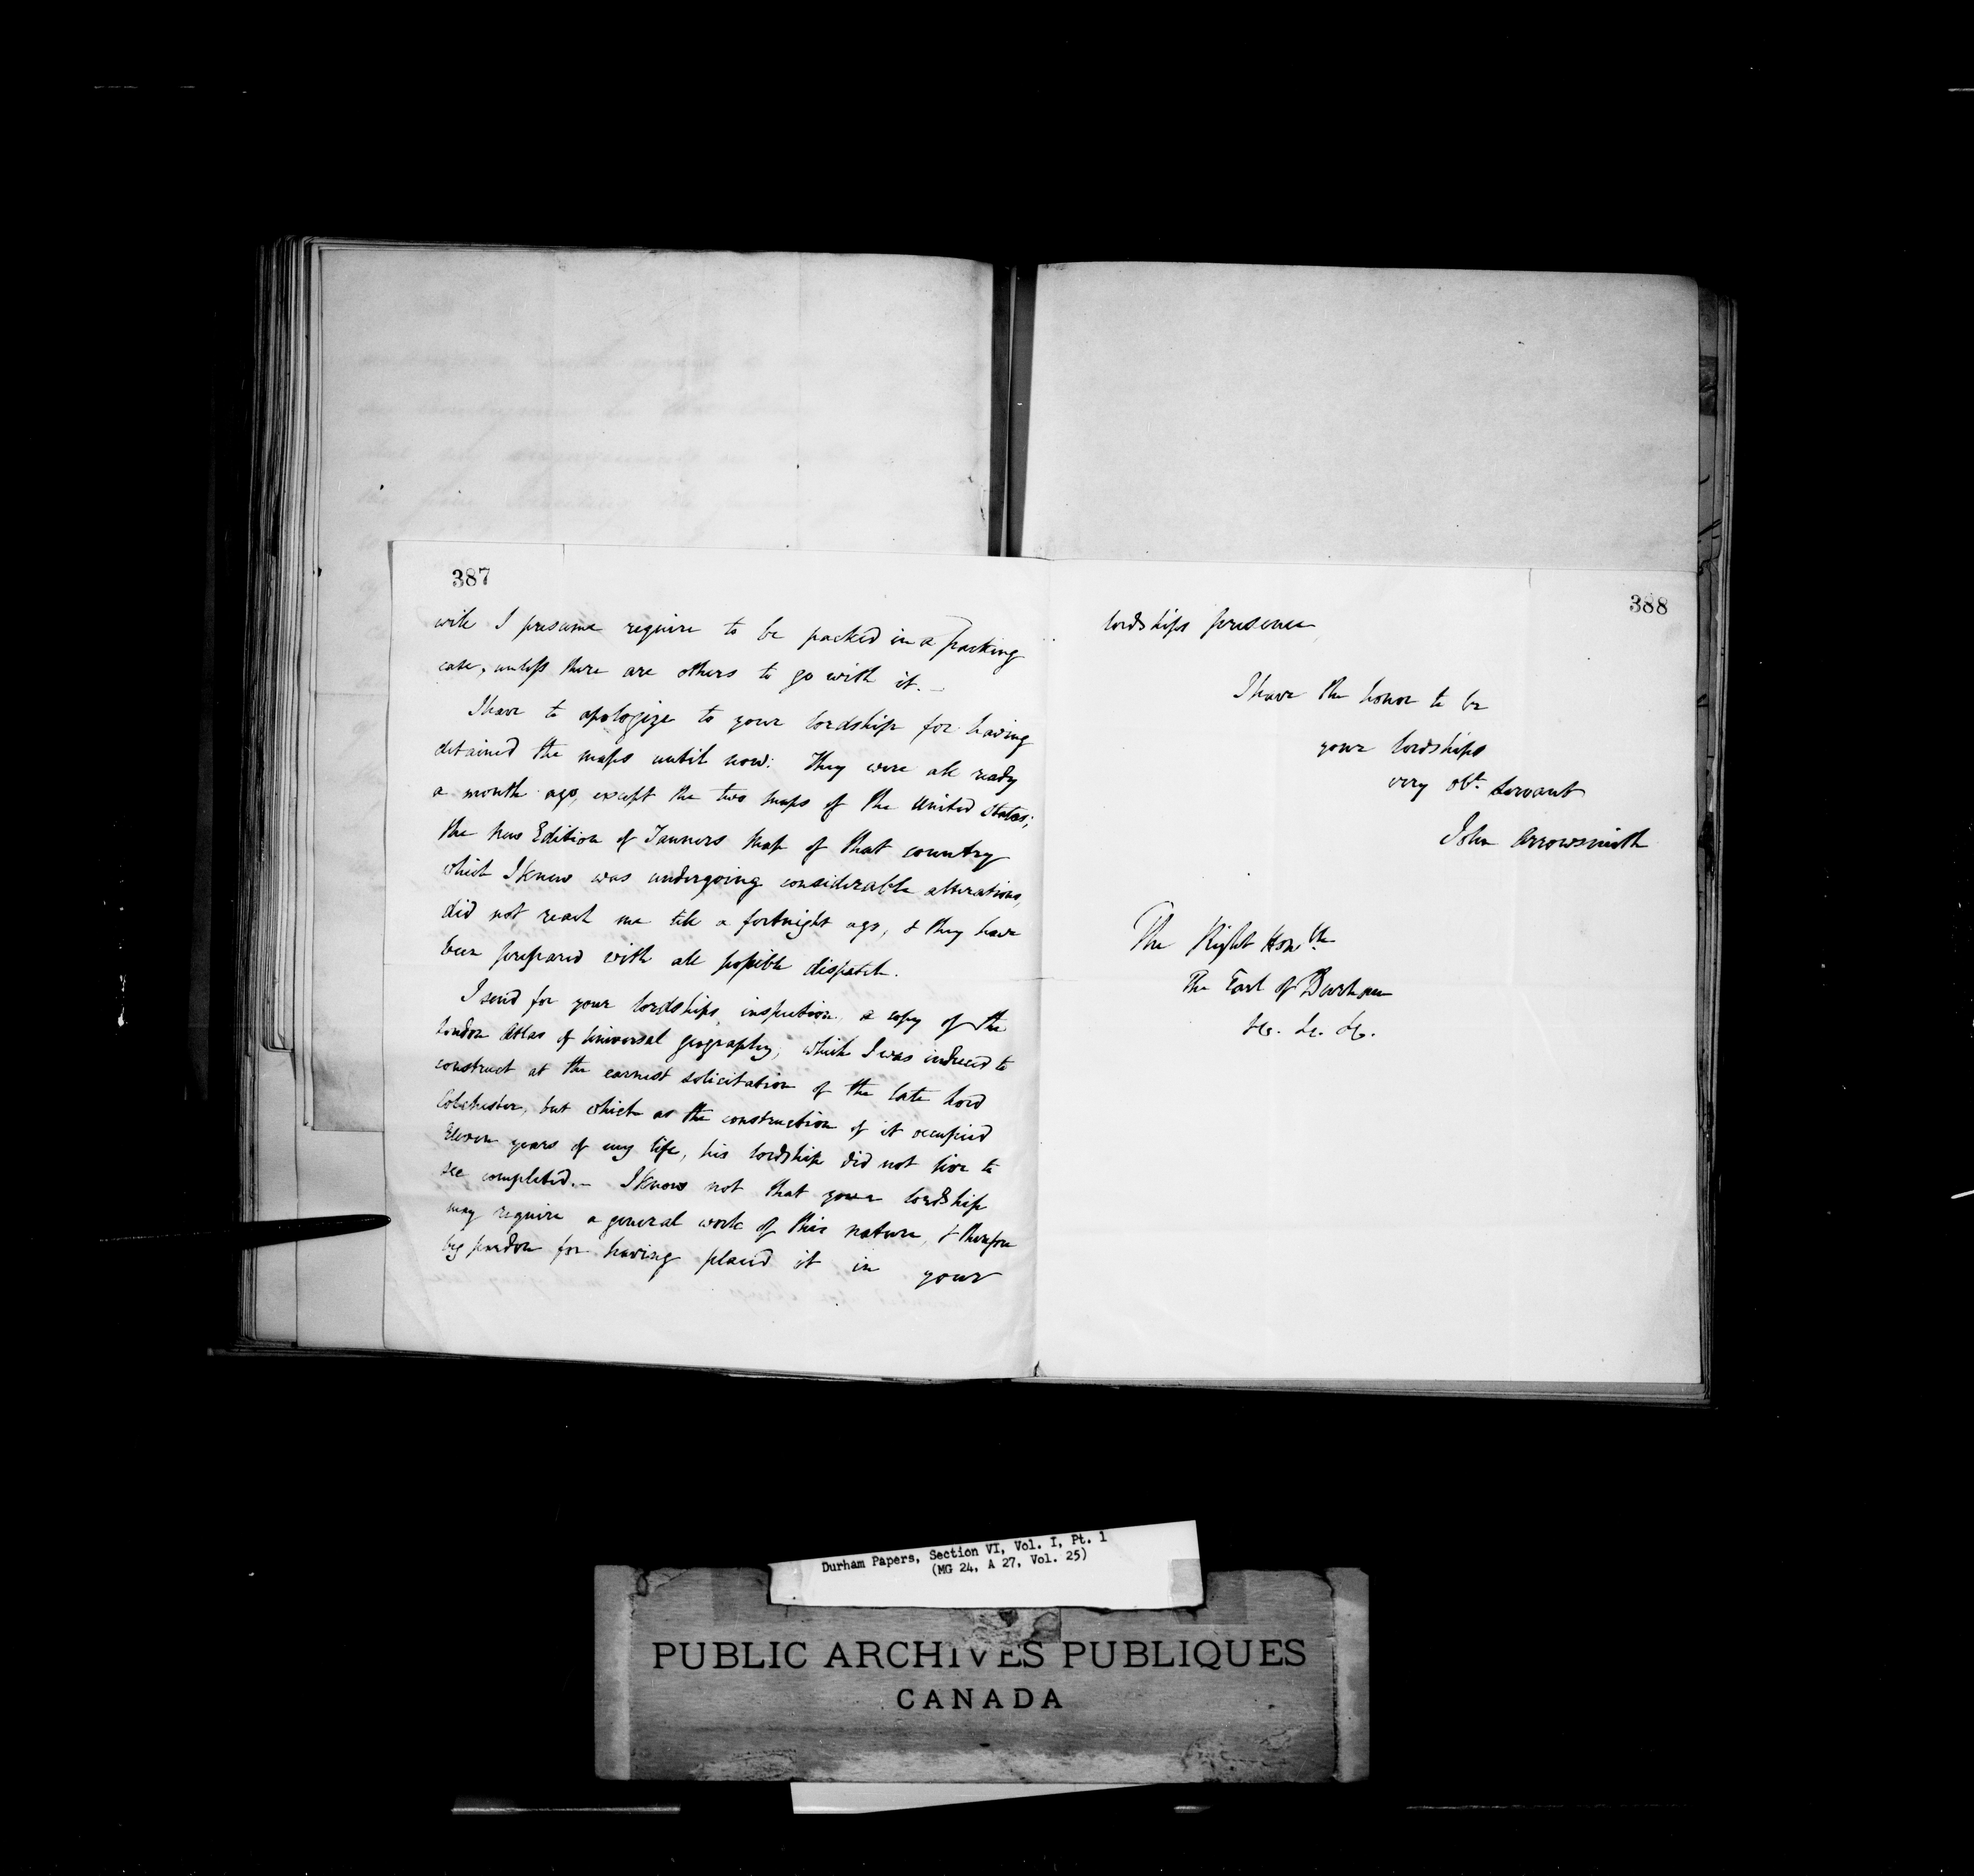 387
will I presume require to be packed in a packing
case, unless there are others to go with it.—
I have to apologize to your lordship for having
detained the maps until now: They were all ready
a month ago, except the two maps of the United States;
the new Edition of Tanners Map of that country
which I knew was undergoing considerable alterations,
did not reach me till a fortnight ago, & they have
been prepared with all possible dispatch.
I send for your lordships inspection a copy of the
London Atlas of Universal geography, which I was induced to
construct at the earnest solicitation of the late Lord
Colchester, but which as the construction of it occupied
Eleven years of my life, his lordship did not live to
see completed.— I know not that your lordship
may require a general work of this nature, & therefore
beg pardon for having placed it in your
388
lordships presence
I have the honor to be
your lordships
very obt. servant
John Arrowsmith
The Right Honble
The Earl of Durham
&c. &c. &c.
Durham Papers, Section VI, Vol. I, Pt. 1
(MG 24, A 27, Vol. 25)
PUBLIC ARCHIVES PUBLIQUES
CANADA